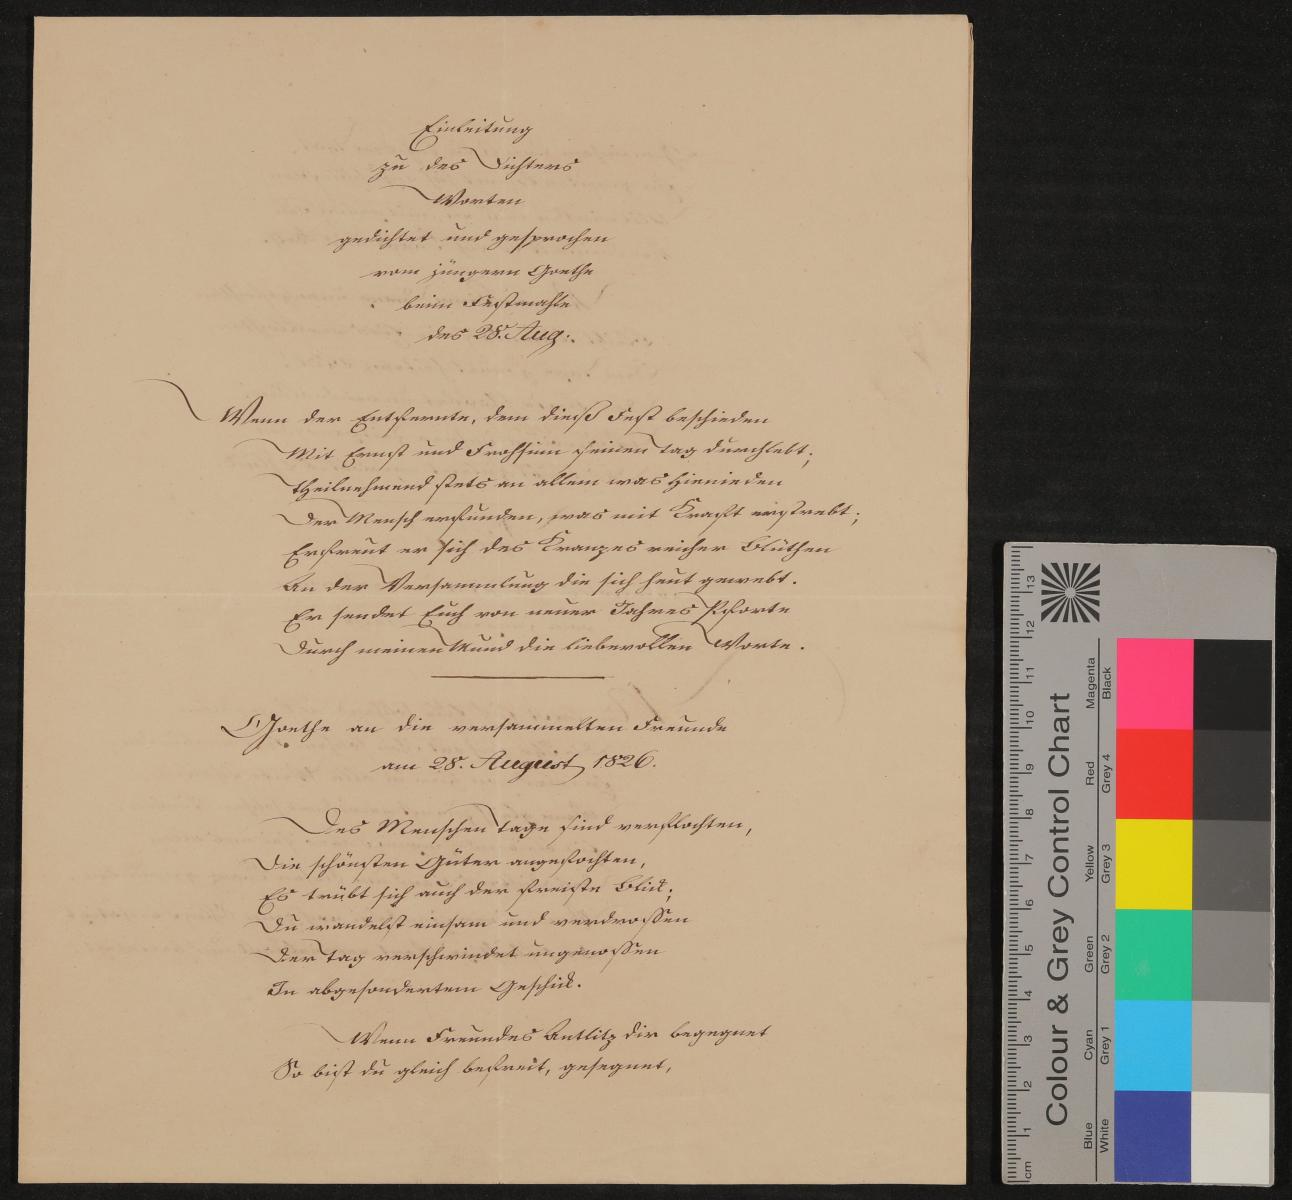 Einleitung
zu des Dichters
Worten
gedichtet und gesprochen
vom jüngern Goethe
beim Festmahle
des 28. Aug:.
Wenn der Entfernte, dem dieß Fest beschieden
Mit Ernst und Frohsinn seinen Tag durchlebt;
Theilnehmend stets an allem was hienieden
Der Mensch erfunden, was mit Kraft erstrebt;
Erfreut er sich des Kranzes reicher Blüthen
An der Versammlung die sich heut gewebt.
Er sendet Euch von neuer Jahres Pforte
Durch meinen Mund die liebevollen Worte.
Goethe an die versammelten Freunde
am 28. August 1826.
Des Menschen Tage sind verflochten,
Die schönsten Güter angefochten,
Es trübt sich auch der freiste Blick;
Du wandelst einsam und verdrossen
Der Tag verschwindet ungenossen
In abgesondertem Geschick.
Wenn Freundes Antlitz dir begegnet
So bist du gleich befreit, gesegnet,
Colour & Grey Control Chart
Blue Cyan Green Yellow Red Magenta
White Grey 1 Grey 2 Grey 3 Grey 4 Black
cm 1 2 3 4 5 6 7 8 9 10 11 12 13